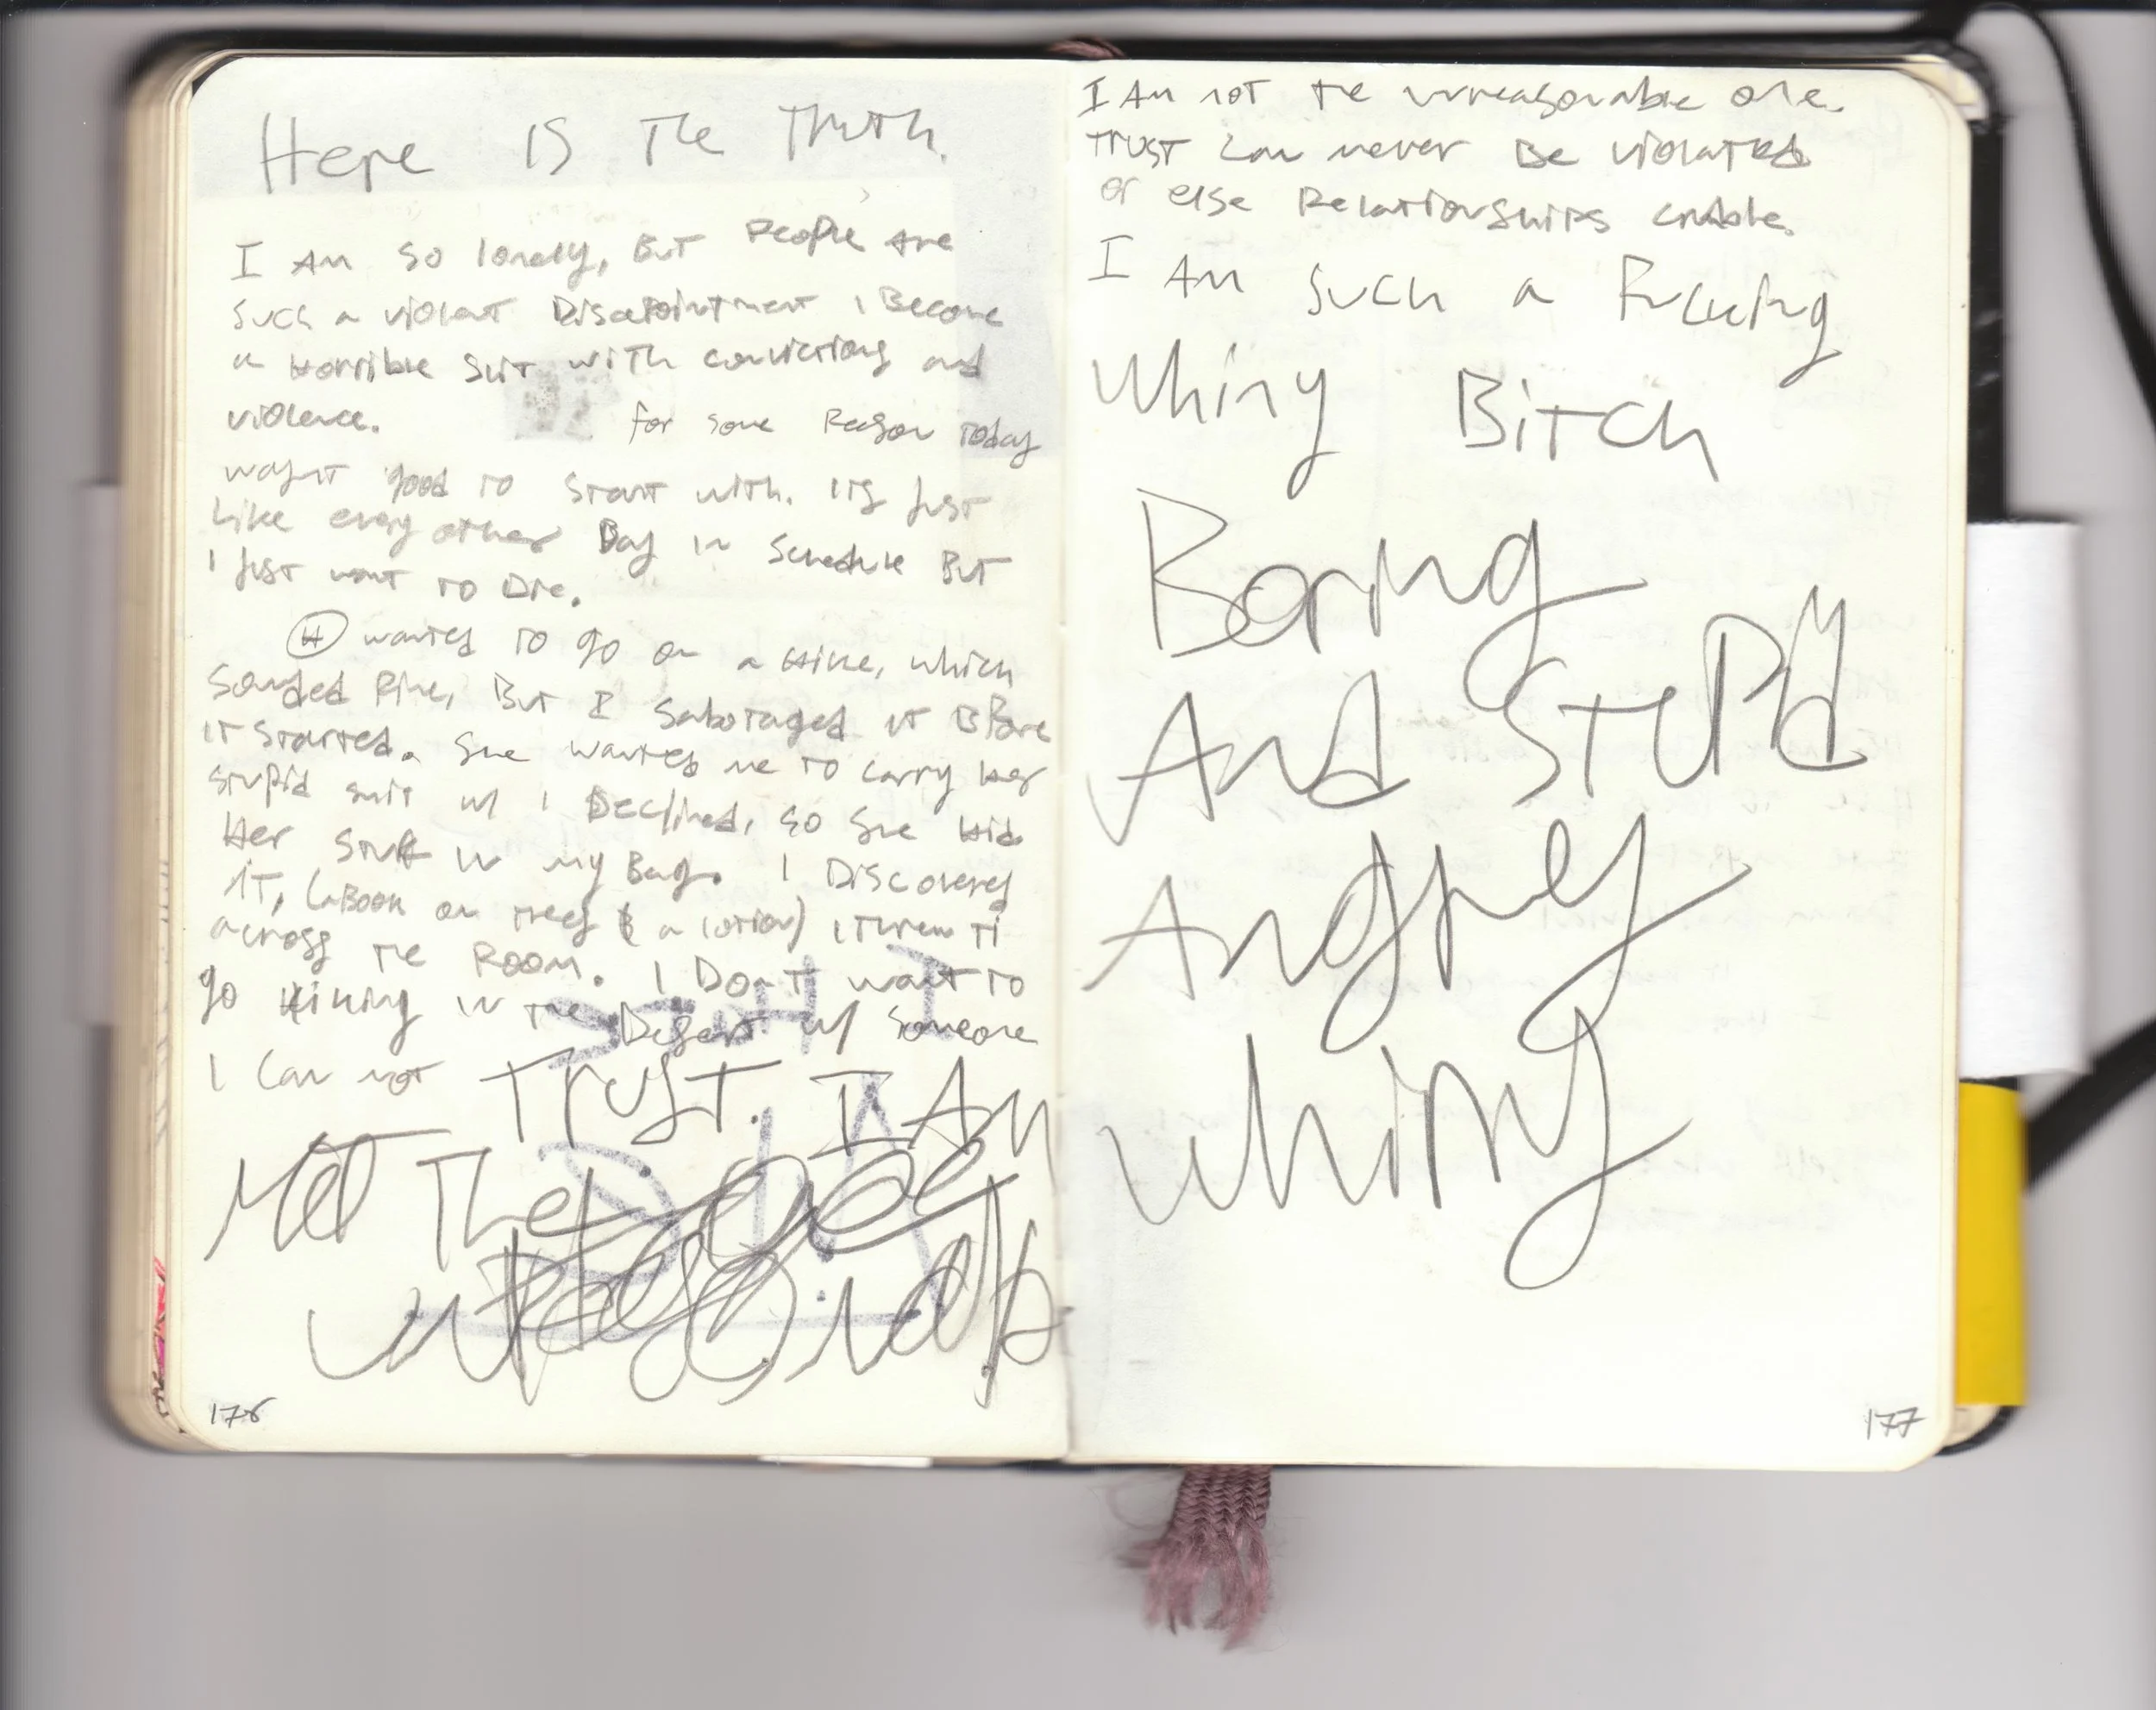 Here is the Truth.
I Am so lonely, But People Are
such a violent Disapointment I Become
a Horrible Shit with convictions and
violence. for some Reason Today
wasnt good to start with. Its just
Like every other Day in schedule But
I just want to Die.
H wanted to go on a Hike, which
sounded fine, But I sabotaged it Before
it started. She wanted me to carry Her
stupid shit w/ I Declined, so she Hid
Her stuff in my Bag. I Discovered
iT, (a Book on trees & a lotion) I threw Ti
across the Room. I Don't want to
go Hiking in the Desert w/ someone
I can not Trust. I Am
Not The
176
I Am not the unreasonable one.
Trust can never Be violated
or else Relationships crumble.
I Am Such a Fucking
Whiny Bitch
Boring
And Stupid
Angrey
Whiny
177